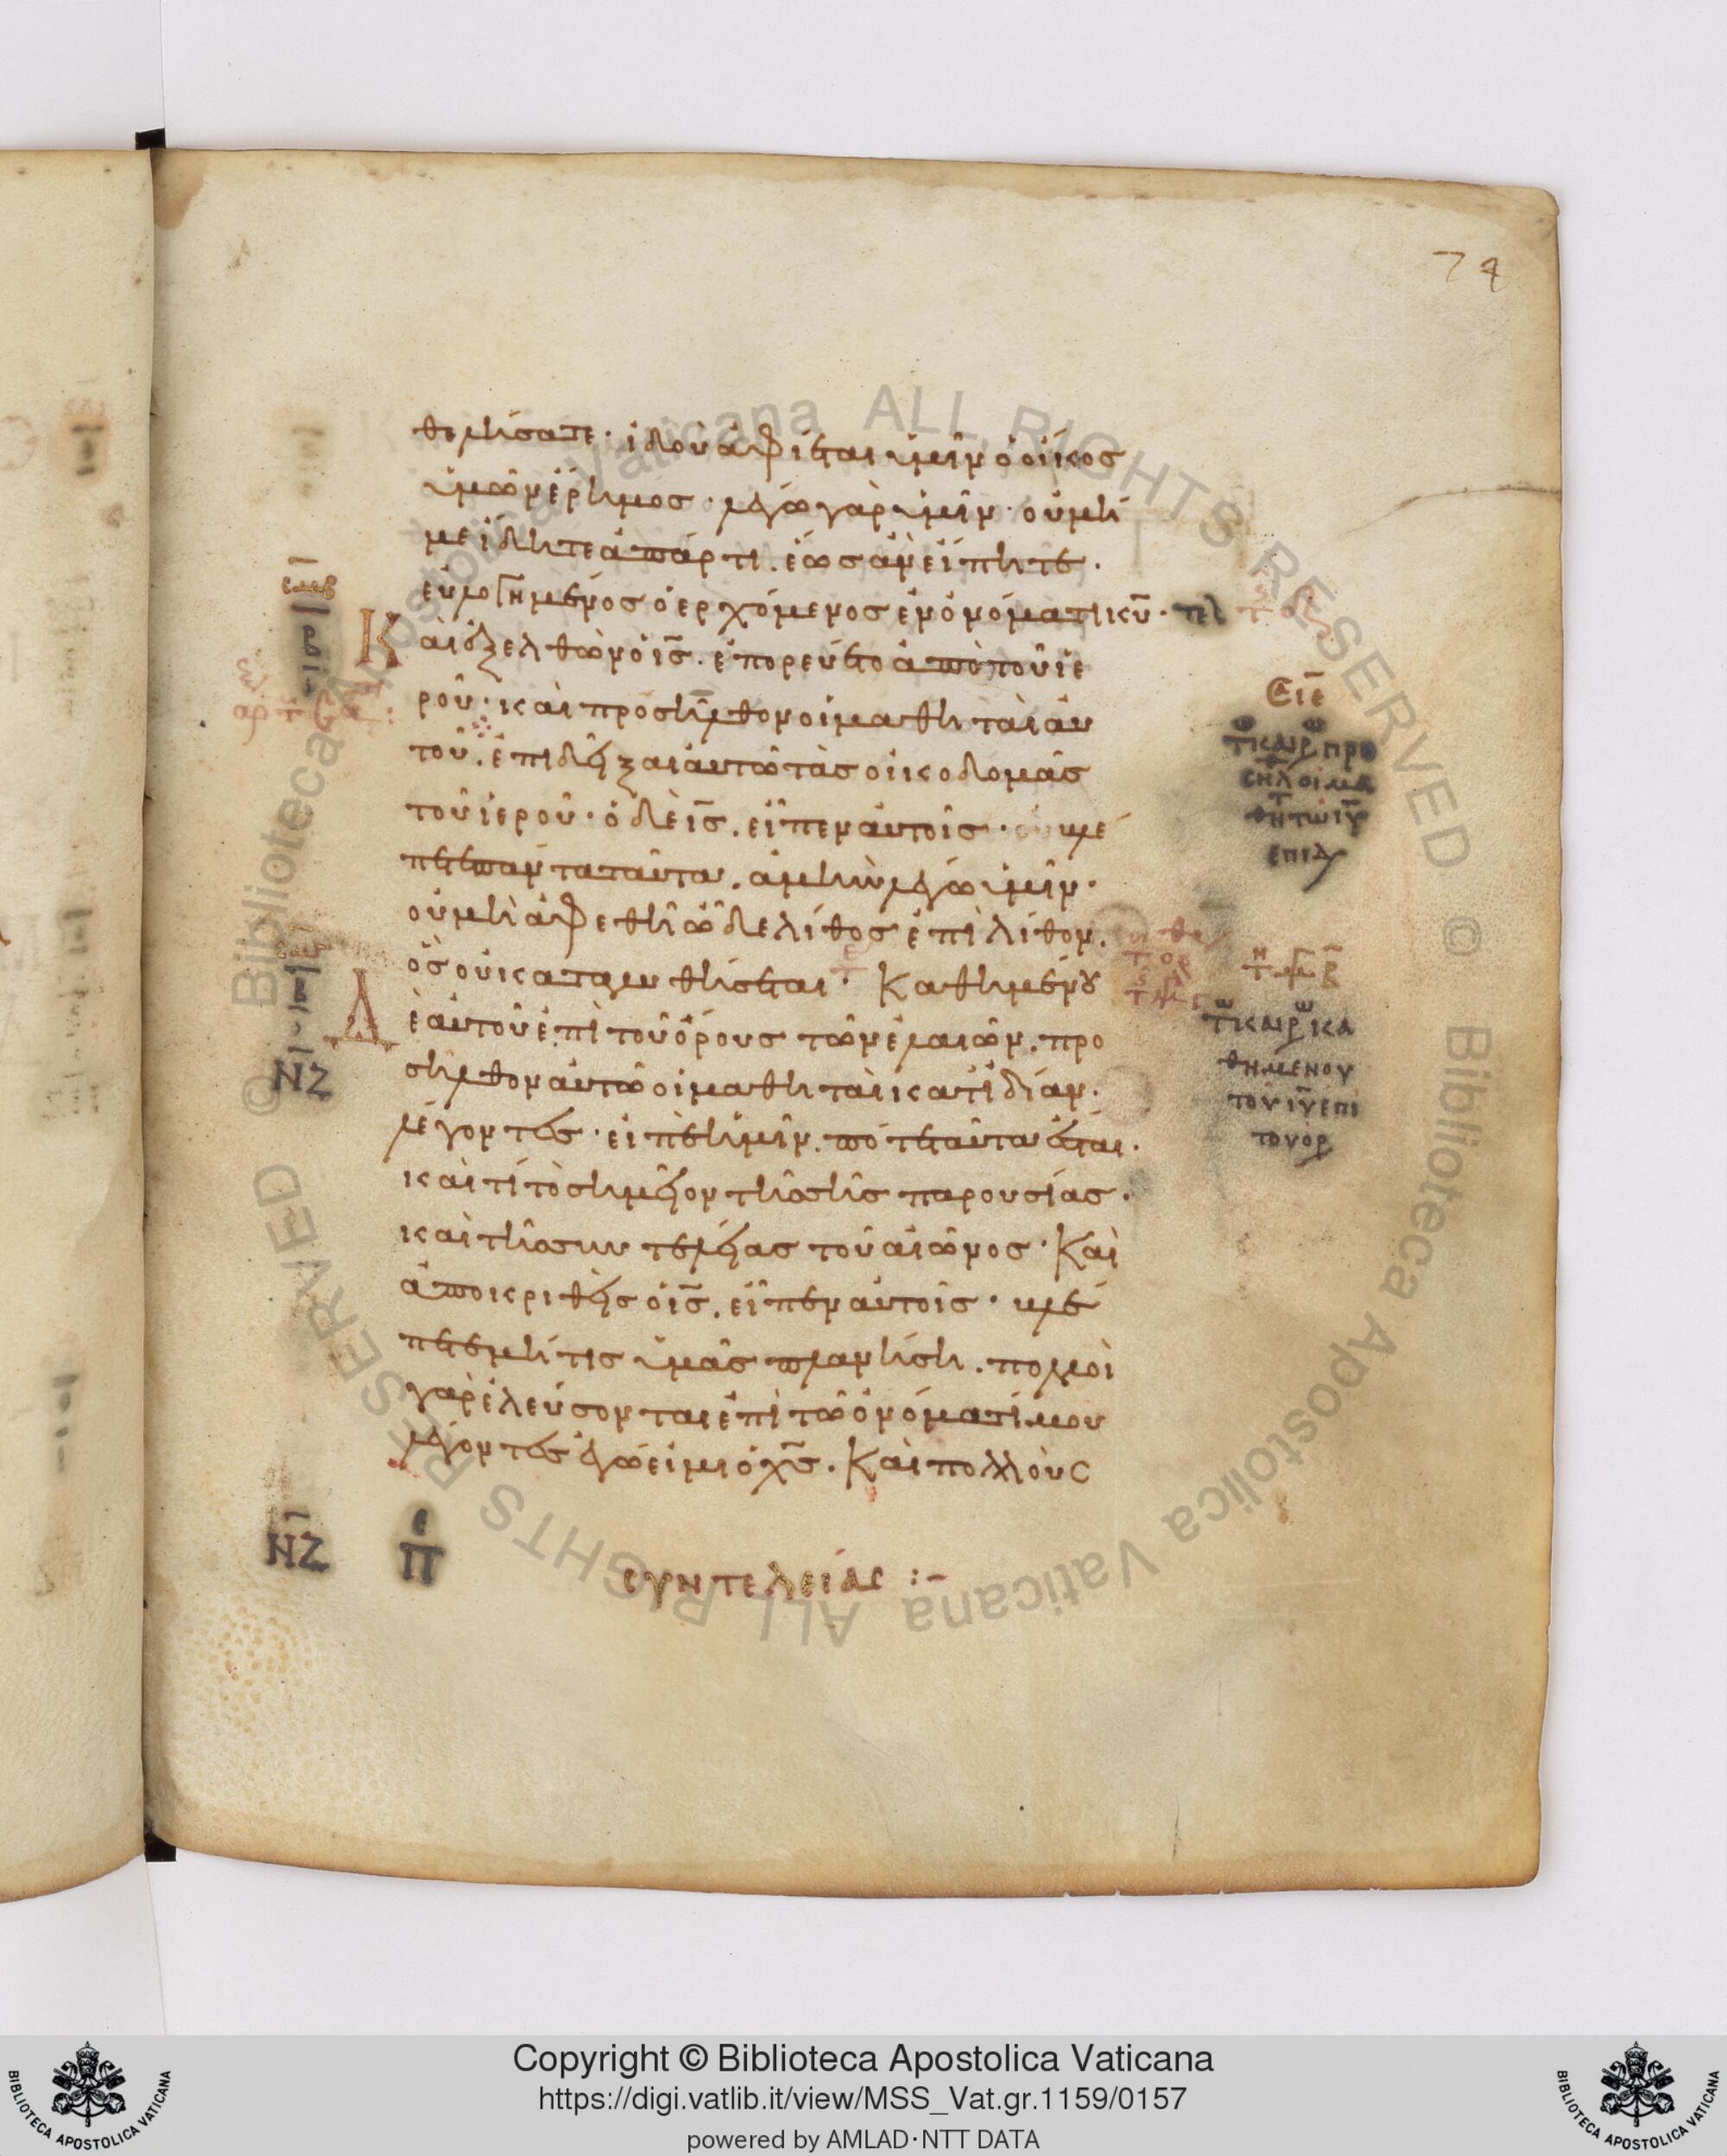 74
θελήσατε· ἰδοὺ ἀφίεται ὑμῖν ὁ οἶκος
ὑμῶν ἔρημος· λέγω γὰρ ὑμῖν· οὐ μή
με ἴδητε ἀπάρτι. ἕως ἂν εἴπητε·
εὐλογημένος ὁ ἐρχόμενος ἐν ὀνόματι κ̅υ̅· τελ
Καὶ ἐξελθὼν ὁ ι̅σ̅. ἐπορεύετο ἀπὸ τοῦ ἱε
ροῦ· καὶ προσῆλθον οἱ μαθηταὶ αὐ
τοῦ. ἐπιδεῖξαι αὐτῶ τὰς οἰκοδομὰς
τοῦ ἱεροῦ· ὁ δὲ ι̅σ̅. εἶπεν αὐτοῖς· οὐ βλέ
πετε πάντα ταῦτα. ἀμὴν λέγω ὑμῖν·
οὐ μὴ ἀφεθῆ ὧδε λίθος ἐπὶ λίθον.
ὃς οὐ καταλυθήσεται· Καθημένου
Δὲ αὐτοῦ ἐπὶ τοῦ ὄρους τῶν ἐλαιῶν. προ
σῆλθον αὐτῶ οἱ μαθηταὶ κατ' ἰδίαν·
λέγοντες· εἰπὲ ἡμῖν. πότε ταῦτα ἔσται·
καὶ τί τὸ σημεῖον τῆς σῆς παρουσίας·
καὶ τῆς συντελείας τοῦ αἰῶνος· Καὶ
ἀποκριθεὶς ὁ ι̅σ̅. εἶπεν αὐτοῖς· βλέ
πετε μή τις ὑμᾶς πλανήση. πολλοὶ
γὰρ ἐλεύσονται ἐπὶ τῶ ὀνόματί μου
λέγοντες ἐγώ εἰμι ὁ χ̅σ̅. Καὶ πολλοὺς
ΝΖ
ΝΖ
συντελείας :-
τω καιρω προ
σηλ οι μα
θητ τω ι̅υ̅
επιδ
τω καιρω κα
θημενου
του ι̅υ̅ επι
του ορ
Copyright © Biblioteca Apostolica Vaticana
https://digi.vatlib.it/view/MSS_Vat.gr.1159/0157
powered by AMLAD·NTT DATA
BIBLIOTECA APOSTOLICA VATICANA
BIBLIOTECA APOSTOLICA VATICANA
© Biblioteca Apostolica Vaticana ALL RIGHTS RESERVED © Biblioteca Apostolica Vaticana ALL RIGHTS RESERVED